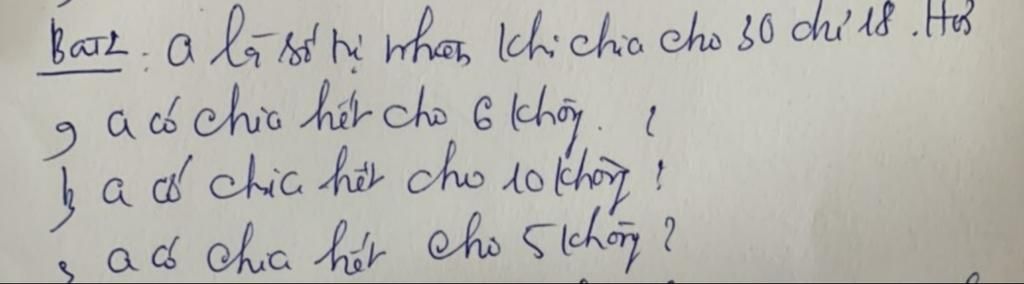 Bài 2 : a là số tự nhiên khi chia cho 30 dư 18 . Hỏi
a, a có chia hết cho 6 không . ?
b, a có chia hết cho 10 không ?
c, a có chia hết cho 5 không ?